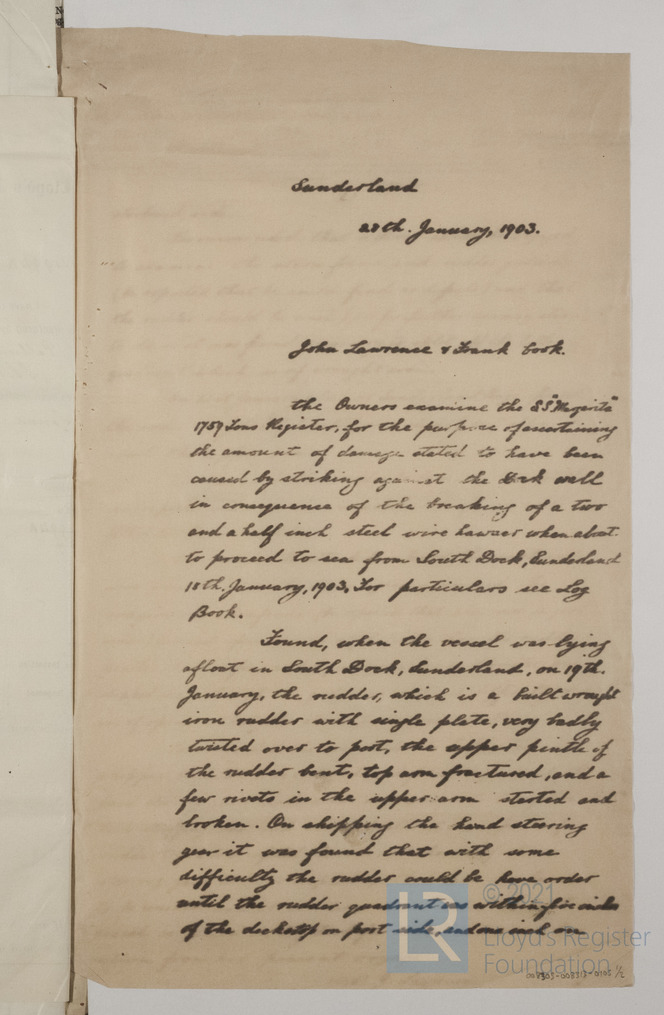 Sunderland
28th. January, 1903.
John Lawrence & Frank Cook.
the Owners examine the SS "Margarita"
1757 Tons Register, for the purpose of ascertaining
the amount of damage stated to have been
caused by striking against the Dock wall
in consequence of the breaking of a two
and a half inch steel wire hawser when about
to proceed to sea from South Dock, Sunderland
18th. January, 1903. For particulars see Log
Book.
Found, when the vessel was lying
afloat in South Dock, Sunderland, on 19th.
January, the rudder, which is a built wrought
iron rudder with single plate, very badly
twisted over to port, the upper pintle of
the rudder bent, top arm fractured, and a
few rivets in the upper arm started and
broken. On shipping the hand steering
gear it was found that with some
difficulty the rudder could be hove order
until the rudder quadrant was within five inches
of the deckstop on port side, and one inch on
LR
© 2021
Lloyd's Register
Foundation
1/2